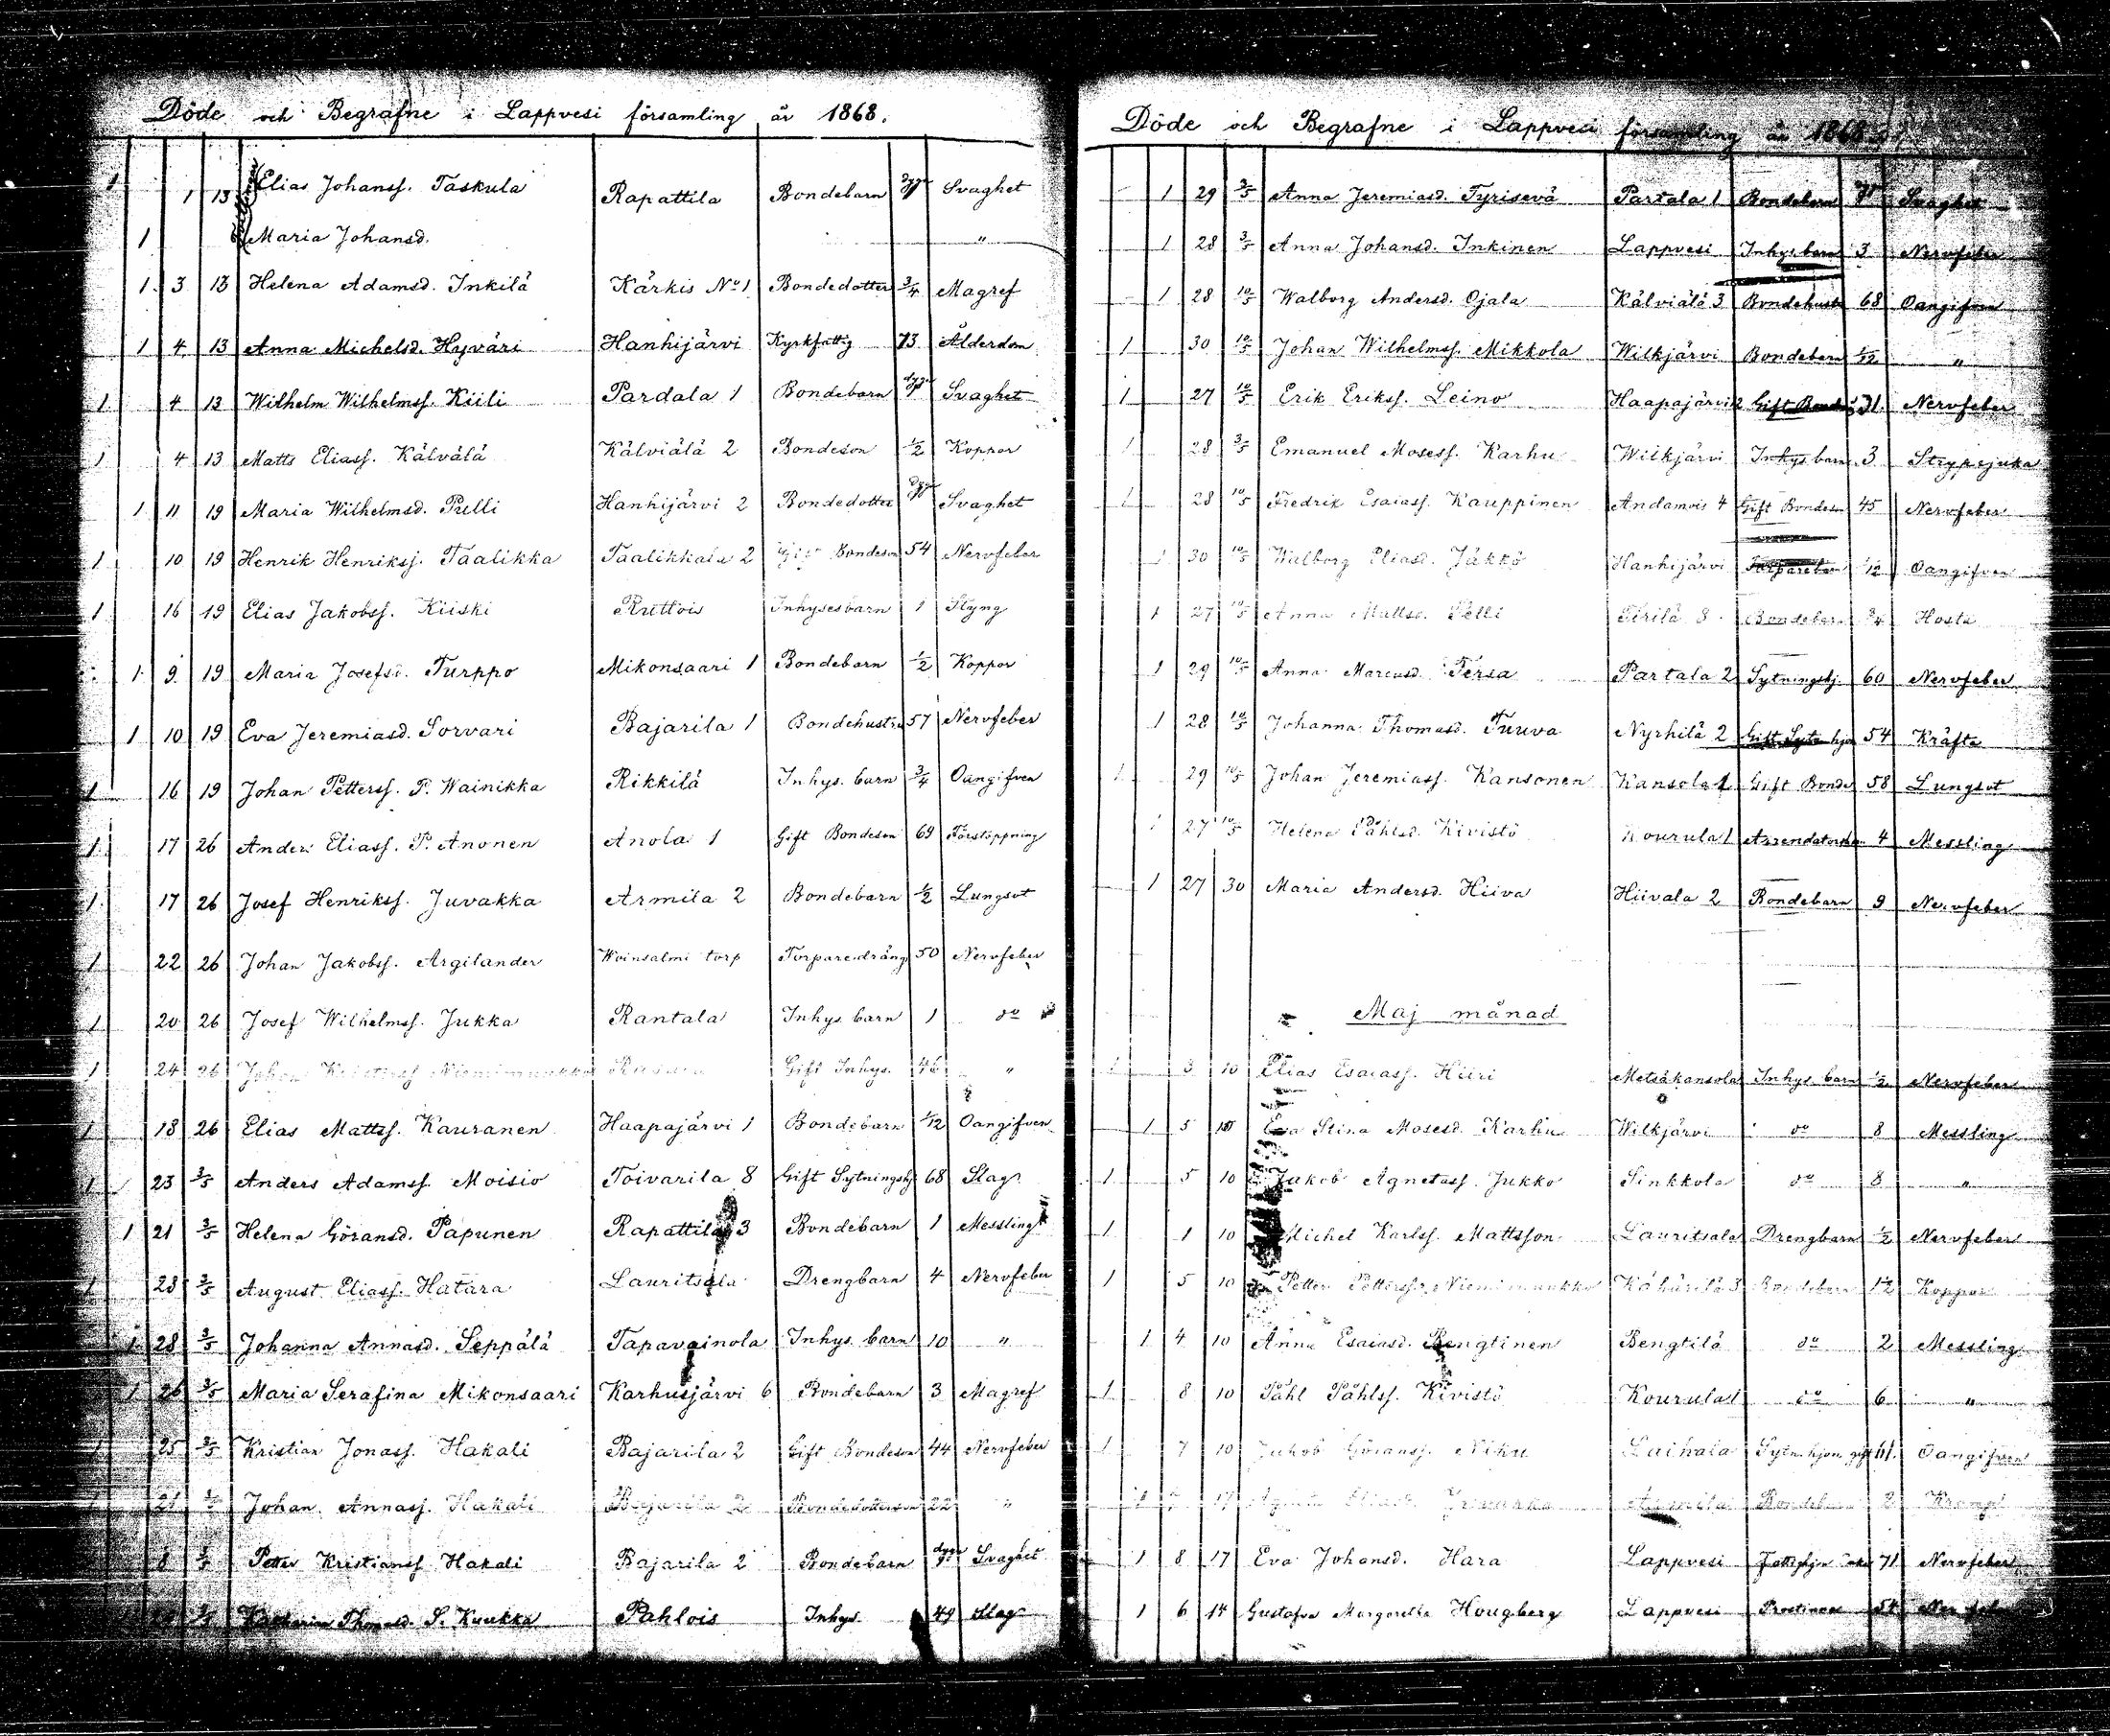 Döde och Begrafne i Lappvesi församling år 1868.
1 1 13 Elias Johanss. Taskula Rapattila Bondebarn Svaghet
1 Maria Johansd. "
1 3 13 Helena Adamsd. Inkilä Kärkis No 1 Bondedotter 3/4 Magref
1 4 13 Anna Michelsd. Hyväri Hanhijärvi Kyrkfattig 73 Ålderdom
1 4 13 Wilhelm Wilhelmss. Kiili Pardala 1 Bondebarn Svaghet
1 4 13 Matts Eliass. Kälvälä Kälviälä 2 Bondeson 1/2 Koppor
1 11 19 Maria Wilhelmsd. Pulli Hanhijärvi 2 Bondedotter Svaghet
1 10 19 Henrik Henrikss. Taalikka Taalikkala 2 Gift Bondeson 54 Nervfeber
1 16 19 Elias Jakobss. Kiiski Ruttois Inhysesbarn 1 Styng
1 9 19 Maria Josefsd. Turppo Mikonsaari 1 Bondebarn 1/2 Koppor
1 10 19 Eva Jeremiasd. Sorvari Bajarila 1 Bondehustru 57 Nervfeber
1 16 19 Johan Petterss. P. Wainikka Rikkilä Inhys. barn 3/4 Oangifven
1 17 26 Anders Eliass. P. Anonen Anola 1 Gift Bondeson 69 Förstoppning
1 17 26 Josef Henrikss. Juvakka Armila 2 Bondebarn 1/2 Lungsot
1 22 26 Johan Jakobss. Argilander Woinsalmi torp Torparedräng 50 Nervfeber
1 20 26 Josef Wilhelmss. Jukka Rantala Inhys. barn 1 do
1 24 26 Johan Niemimuukko Gift Inhys. 46 "
1 18 26 Elias Mattss. Kauranen Haapajärvi 1 Bondebarn 1/12 Oangifven
1 23 3/5 Anders Adamss. Moisio Toivarila 8 Gift Sytningshj. 68 Slag
1 21 3/5 Helena Göransd. Papunen Rapattila 3 Bondebarn 1 Messling
1 28 3/5 August Eliass. Hatara Lauritsala Drengbarn 4 Nervfeber
1 28 3/5 Johanna Annasd. Seppälä Tapavainola Inhys. barn 10 "
1 26 3/5 Maria Serafina Mikonsaari Karhusjärvi 6 Bondebarn 3 Magref
1 25 3/5 Kristian Jonass. Hakali Bajarila 2 Gift Bondeson 44 Nervfeber
21 3/5 Johan Annass. Hakali Bajarila 2 Bondedotterson 22 "
8 3/5 Petter Kristianss. Hakali Bajarila 2 Bondebarn Svaghet
Katharina Thomasd. S. Kuukka Pahlois Inhys. 49 Slag
Döde och Begrafne i Lappvesi församling år 1868.
1 29 3/5 Anna Jeremiasd. Tyrisevä Partala 1 Bondebarn Svaghet
1 28 3/5 Anna Johansd. Inkinen Lappvesi Inhys. barn 3 Nervfeber
1 28 10/5 Walborg Andersd. Ojala Kälviälä 3 Bondehustru 68 Oangifven
1 30 10/5 Johan Wilhelmss. Mikkola Wilkjärvi Bondebarn 1/12 "
1 27 10/5 Erik Erikss. Leino Haapajärvi 2 Gift Bonde 31 Nervfeber
1 28 3/5 Emanuel Mosess. Karhu Wilkjärvi Inhys barn 3 Strypsjuka
1 28 10/5 Fredrik Esaiass. Kauppinen Andamois 4 Gift Bondeson 45 Nervfeber
1 30 10/5 Walborg Eliasd. Jäkkö Hanhijärvi Torparebarn 1/12 Oangifven
1 27 10/5 Anna Mattsd. Pelli Tirilä 8 Bondebarn 3/4 Hosta
1 29 10/5 Anna Marcusd. Tersa Partala 2 Sytningshj. 60 Nervfeber
1 28 10/5 Johanna Thomasd. Tuuva Nyrhilä 2 Gift Sytn. hjon 54 Kräfta
1 29 10/5 Johan Jeremiass. Kansonen Kansola 1 Gift Bonde 58 Lungsot
1 27 10/5 Helena Påhlsd. Kivistö Kourula 1 4 Messling
1 27 30 Maria Andersd. Hiiva Hiivala 2 Bondebarn 9 Nervfeber
Maj månad
1 3 10 Elias Esaiass. Hiiri Metsäkansola Inhys barn 1/2 Nervfeber
1 5 10 Eva Stina Mosesd. Karhu Wilkjärvi do 8 Messling
1 5 10 Jakob Agnetass. Jukko Sinkkola do 8 "
1 1 10 Michel Karlss. Mattsson Lauritsala Drengbarn 1/2 Nervfeber
1 5 10 Petter Petterss. Niemimuukko Kähärilä 3 Bondebarn 1/2 Koppor
1 4 10 Anna Esaiasd. Bengtinen Bengtilä do 2 Messling
1 8 10 Påhl Påhlss. Kivistö Kourula 1 do 6 "
1 7 10 Jakob Göranss. Niku Laihala Sytn. hjon gift 61 Oangifven
1 17 Juvakka Armila Bondebarn 2 Kramp
1 8 17 Eva Johansd. Hara Lappvesi 71 Nervfeber
1 6 14 Gustafva Margaretha Hougberg Lappvesi Prostinna 54